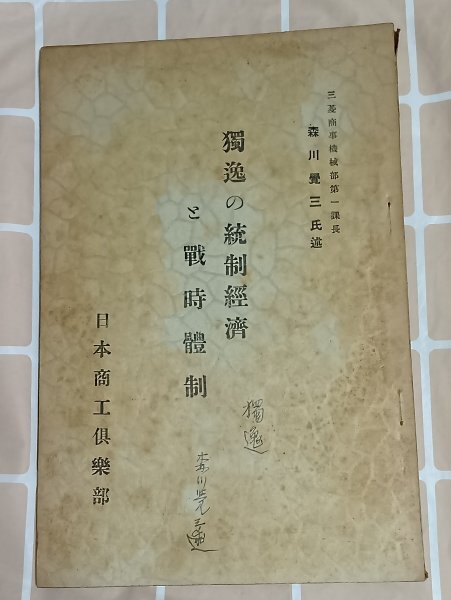 三菱商事機械部第一課長
森川覺三氏述
獨逸の統制經濟
と戰時體制
日本商工倶樂部
獨逸
森川覚三述